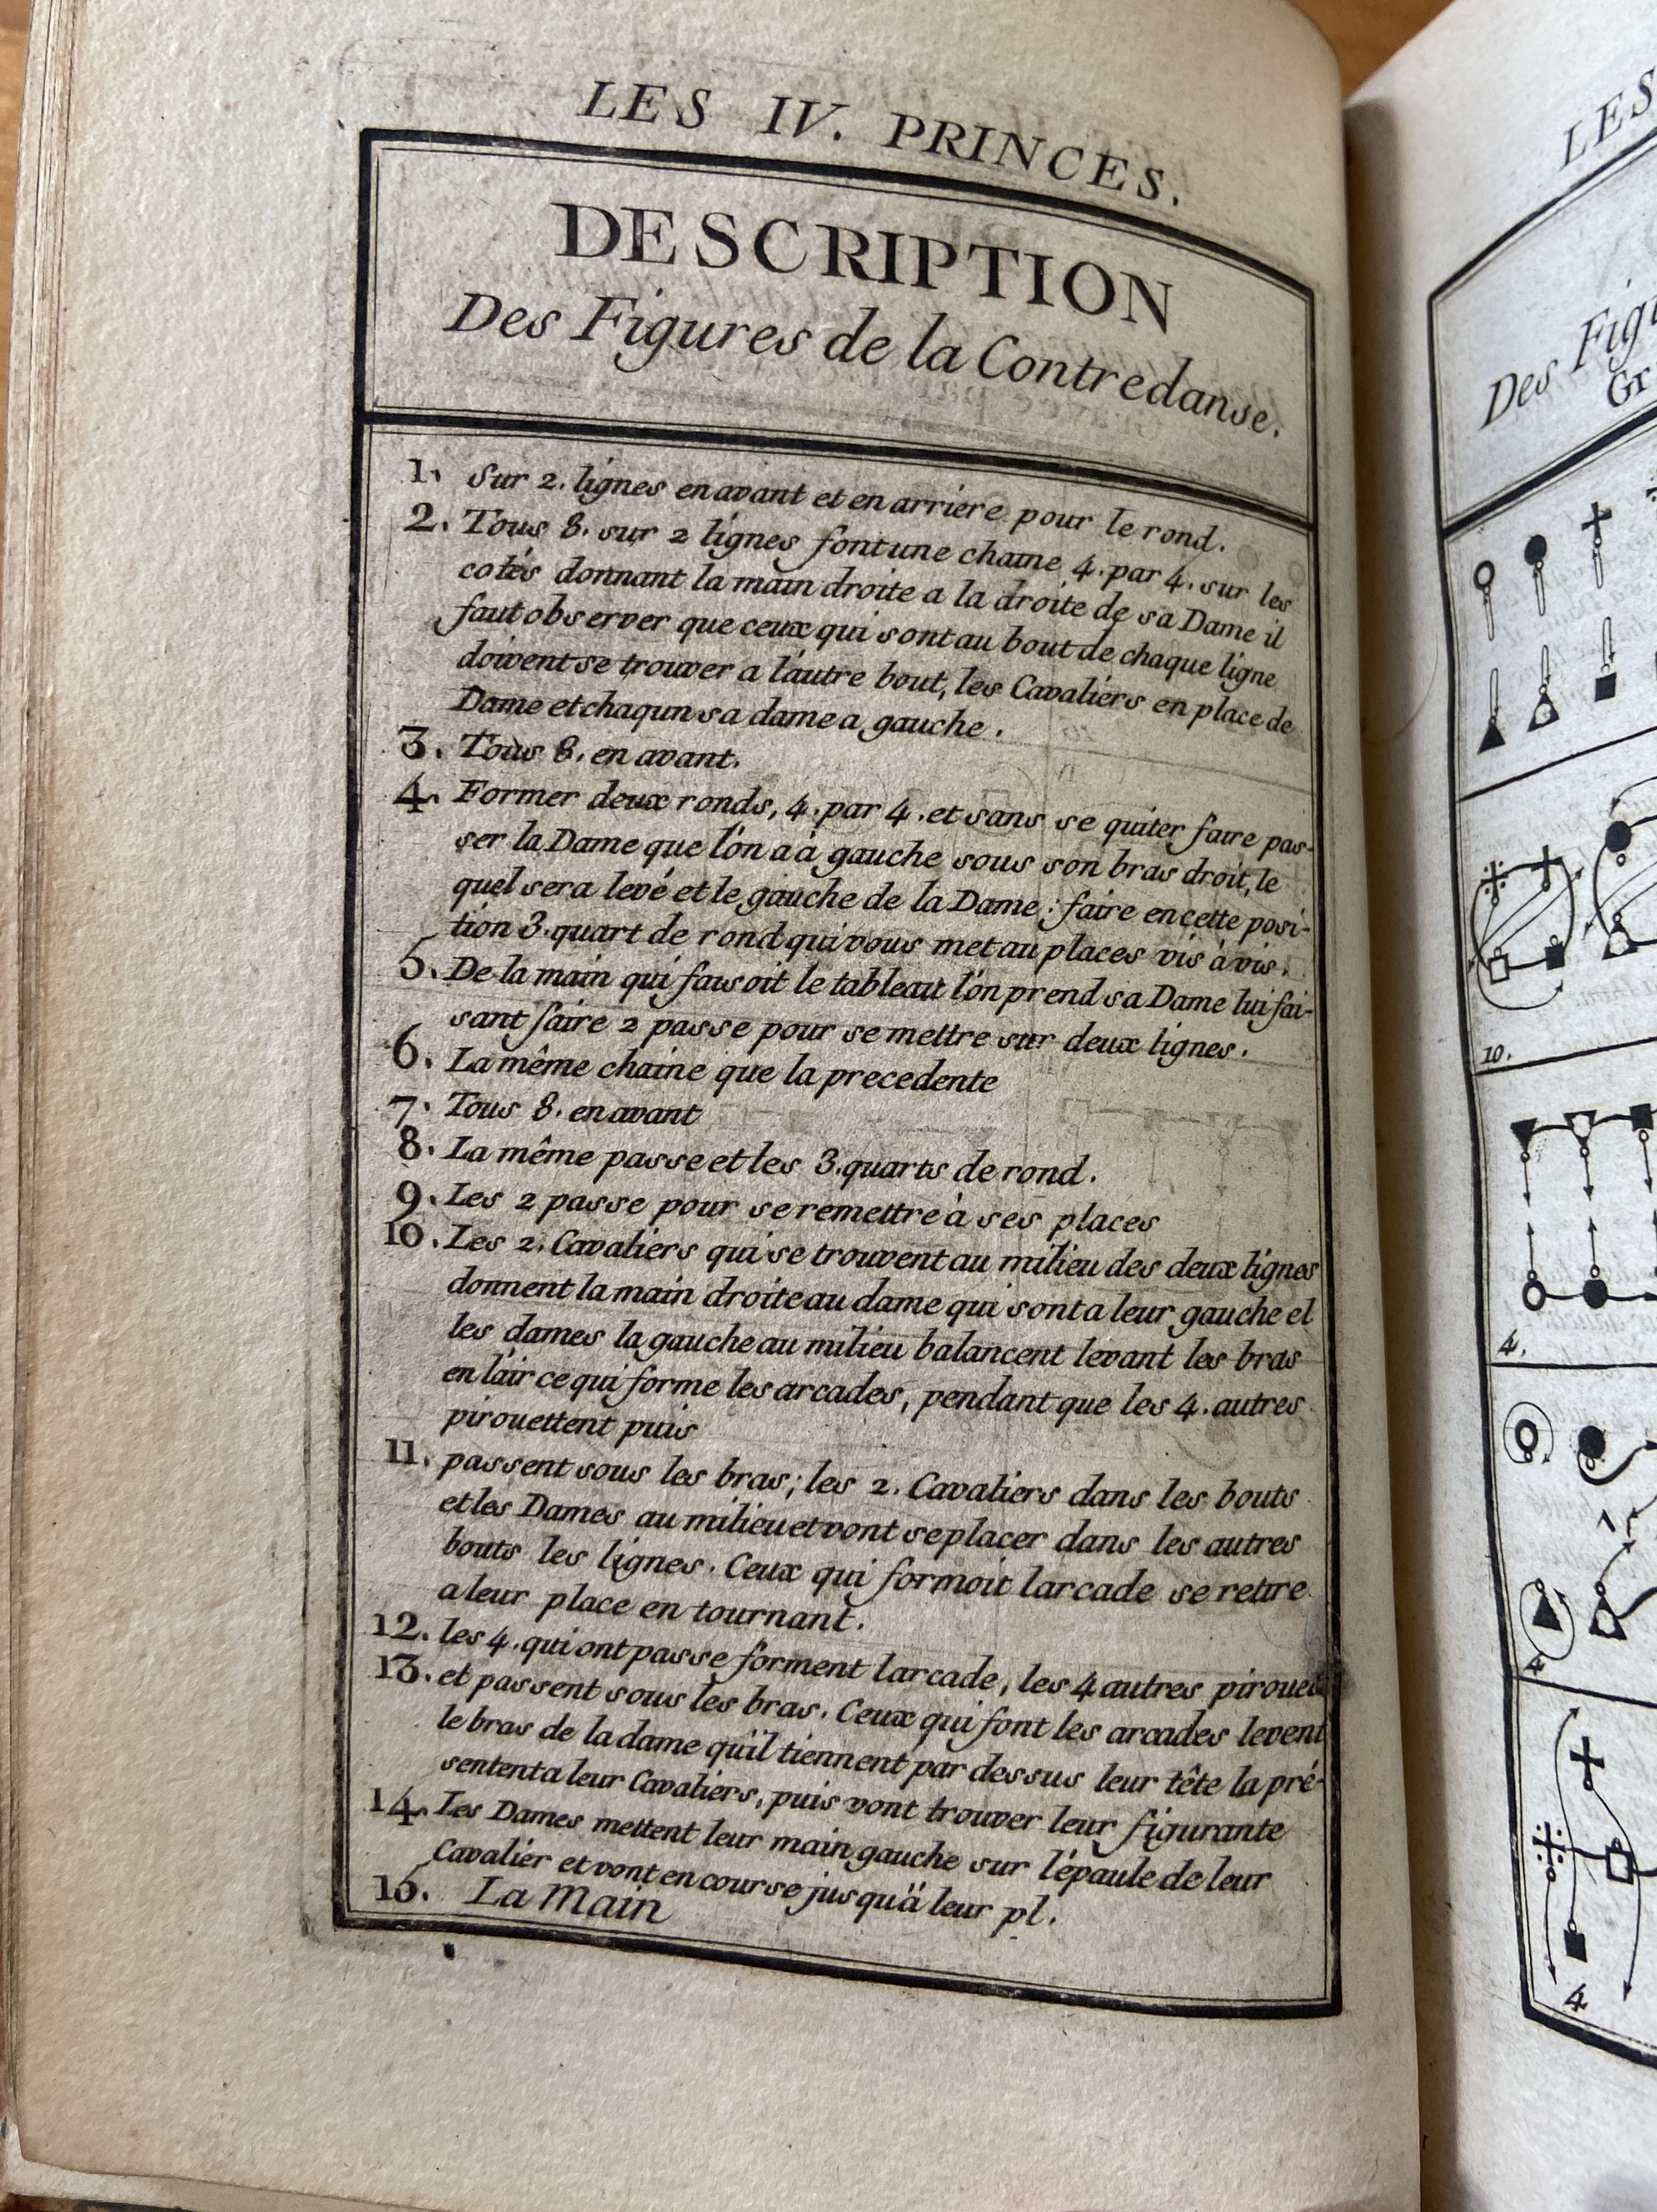 LES IV. PRINCES.
DESCRIPTION
Des Figures de la Contredanse.
1. Sur 2. lignes en avant et en arriere pour le rond.
2. Tous 8. sur 2 lignes font une chaine 4. par 4. sur les
cotés donnant la main droite a la droite de sa Dame il
faut observer que ceux qui sont au bout de chaque ligne
doivent se trouver a l'autre bout, les Cavaliers en place de
Dame et chaqun sa dame a gauche.
3. Tous 8. en avant.
4. Former deux ronds, 4. par 4. et sans se quiter faire pas-
ser la Dame que l'on a à gauche sous son bras droit, le
quel sera levé et le gauche de la Dame; faire en cette posi-
tion 3. quart de rond qui vous met au places vis à vis.
5. De la main qui faisoit le tableau l'on prend sa Dame lui fai-
sant faire 2 passe pour se mettre sur deux lignes.
6. La même chaine que la precedente
7. Tous 8. en avant
8. La même passe et les 3. quarts de rond.
9. Les 2 passe pour se remettre à ses places
10. Les 2. Cavaliers qui se trouvent au milieu des deux lignes
donnent la main droite au dame qui sont a leur gauche et
les dames la gauche au milieu balancent levant les bras
en l'air ce qui forme les arcades, pendant que les 4. autres
pirouettent puis
11. passent sous les bras; les 2. Cavaliers dans les bouts
et les Dames au milieu et vont se placer dans les autres
bouts les lignes. Ceux qui formoit larcade se retire
a leur place en tournant.
12. les 4. qui ont passe forment larcade, les 4 autres pirouet
13. et passent sous les bras. Ceux qui font les arcades levent
le bras de la dame qu'il tiennent par dessus leur tête la pré-
sentent a leur Cavaliers, puis vont trouver leur figurante
14. Les Dames mettent leur main gauche sur l'épaule de leur
Cavalier et vont en course jusqu'à leur pl.
15. La Main
LES
Des Figu
Gr
10.
4.
4
4